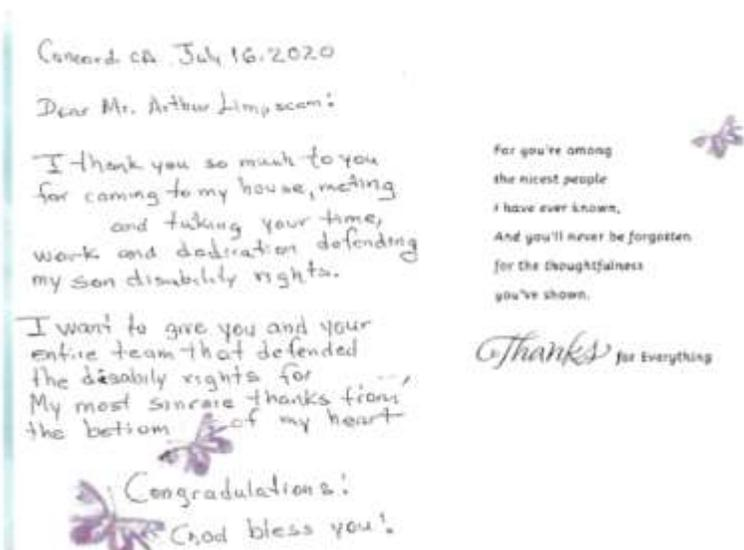 Concord. CA July 16.2020
Dear Mr. Arthur Limpscom:
I thank you so much to you
for coming to my house, meting
and taking your time,
work and dedication defending
my son disability rights.
I want to give you and your
entire team that defended
the disabily rights for
My most sincaie thanks from
the bottom of my heart
Congradulations!
God bless you!
For you're among
the nicest people
I have ever known,
And you'll never be forgotten
for the thoughtfulness
you've shown.
Thanks for Everything